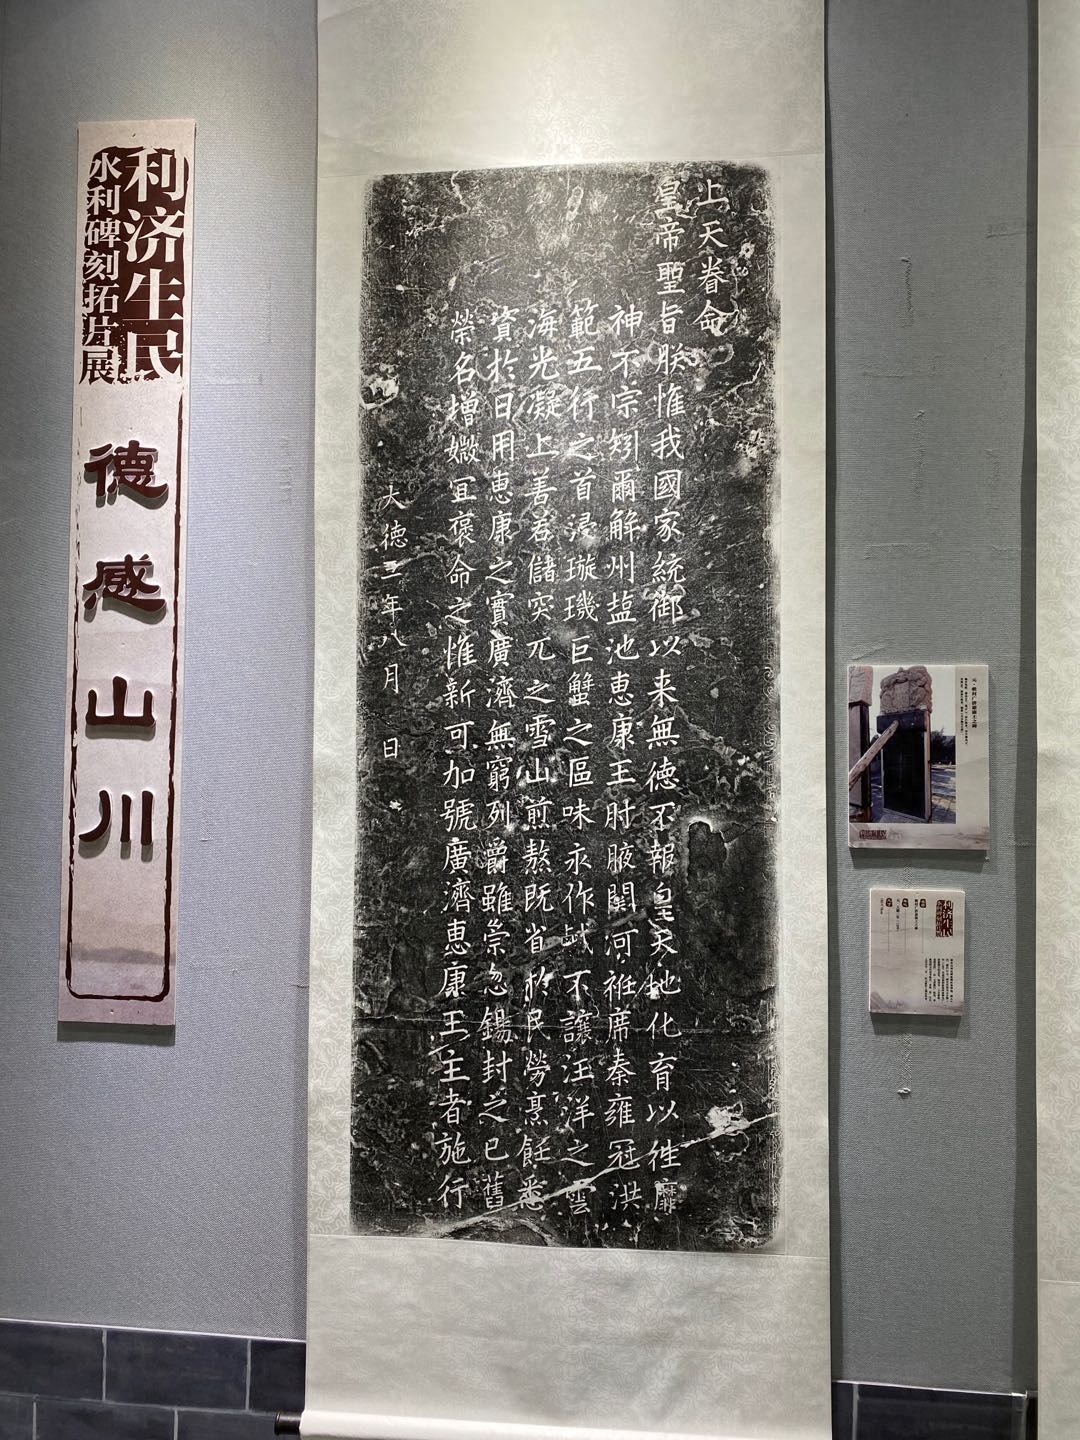 利济生民
水利碑刻拓片展
德感山川
上天眷命
皇帝聖旨朕惟我國家統御以来無德不報皇天地化育以徃靡
神不宗矧爾解州盐池惠康王肘腋關河袵席秦雍冠洪
範五行之首浸璇璣巨蟹之區味永作鹹不讓汪洋之雲
海光凝上善若儲突兀之雪山煎熬既省於民勞烹飪悉
資於日用惠康之實廣濟無窮列爵雖崇忽錫封之已舊
榮名增媺冝褒命之惟新可加號廣濟惠康王主者施行
大德三年八月 日
利济生民